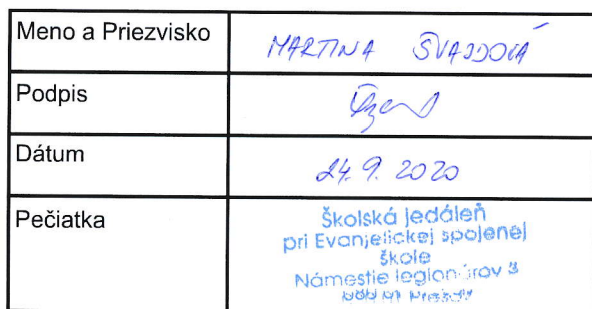 Meno a Priezvisko MARTINA ŠVAJDOVÁ
Podpis
Dátum 24. 9. 2020
Pečiatka Školská jedáleň
pri Evanjelickej spojenej
škole
Námestie legionárov 3